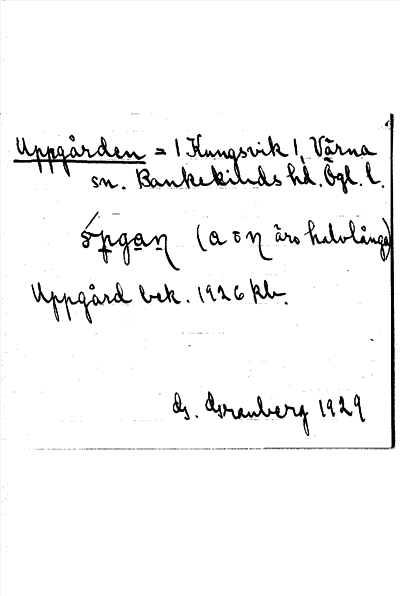 Uppgården = 1 Kungsvik 1, Värna
sn. Bankekinds hd. Ögl. l.
(a o η äro halvlånga)
Uppgård bek. 1926 kb.
G. Granberg 1929